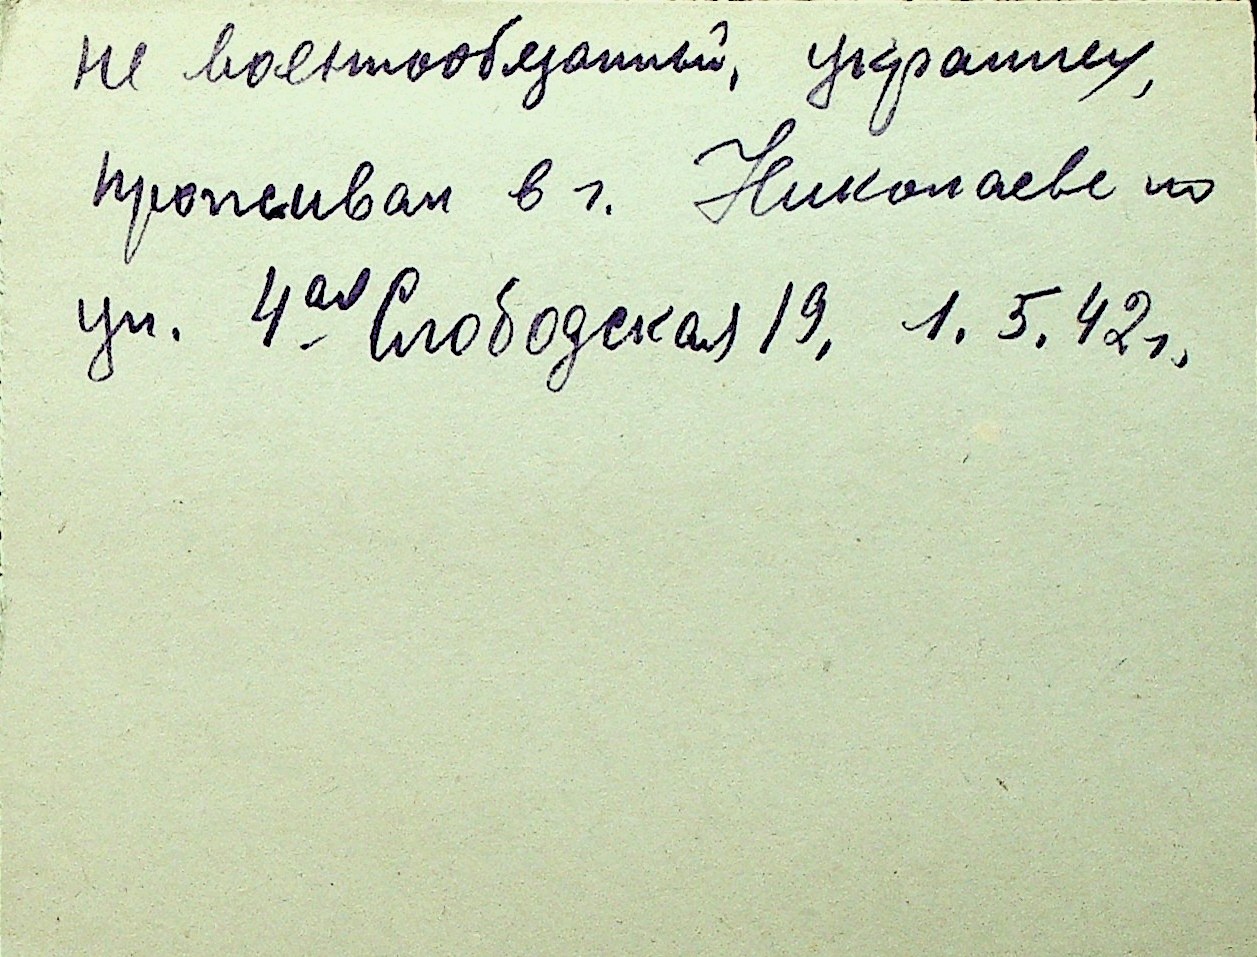 не военнообязанный, украинец,
проживал в г. Николаеве по
ул. 4ая Слободская 19, 1.5.42г.